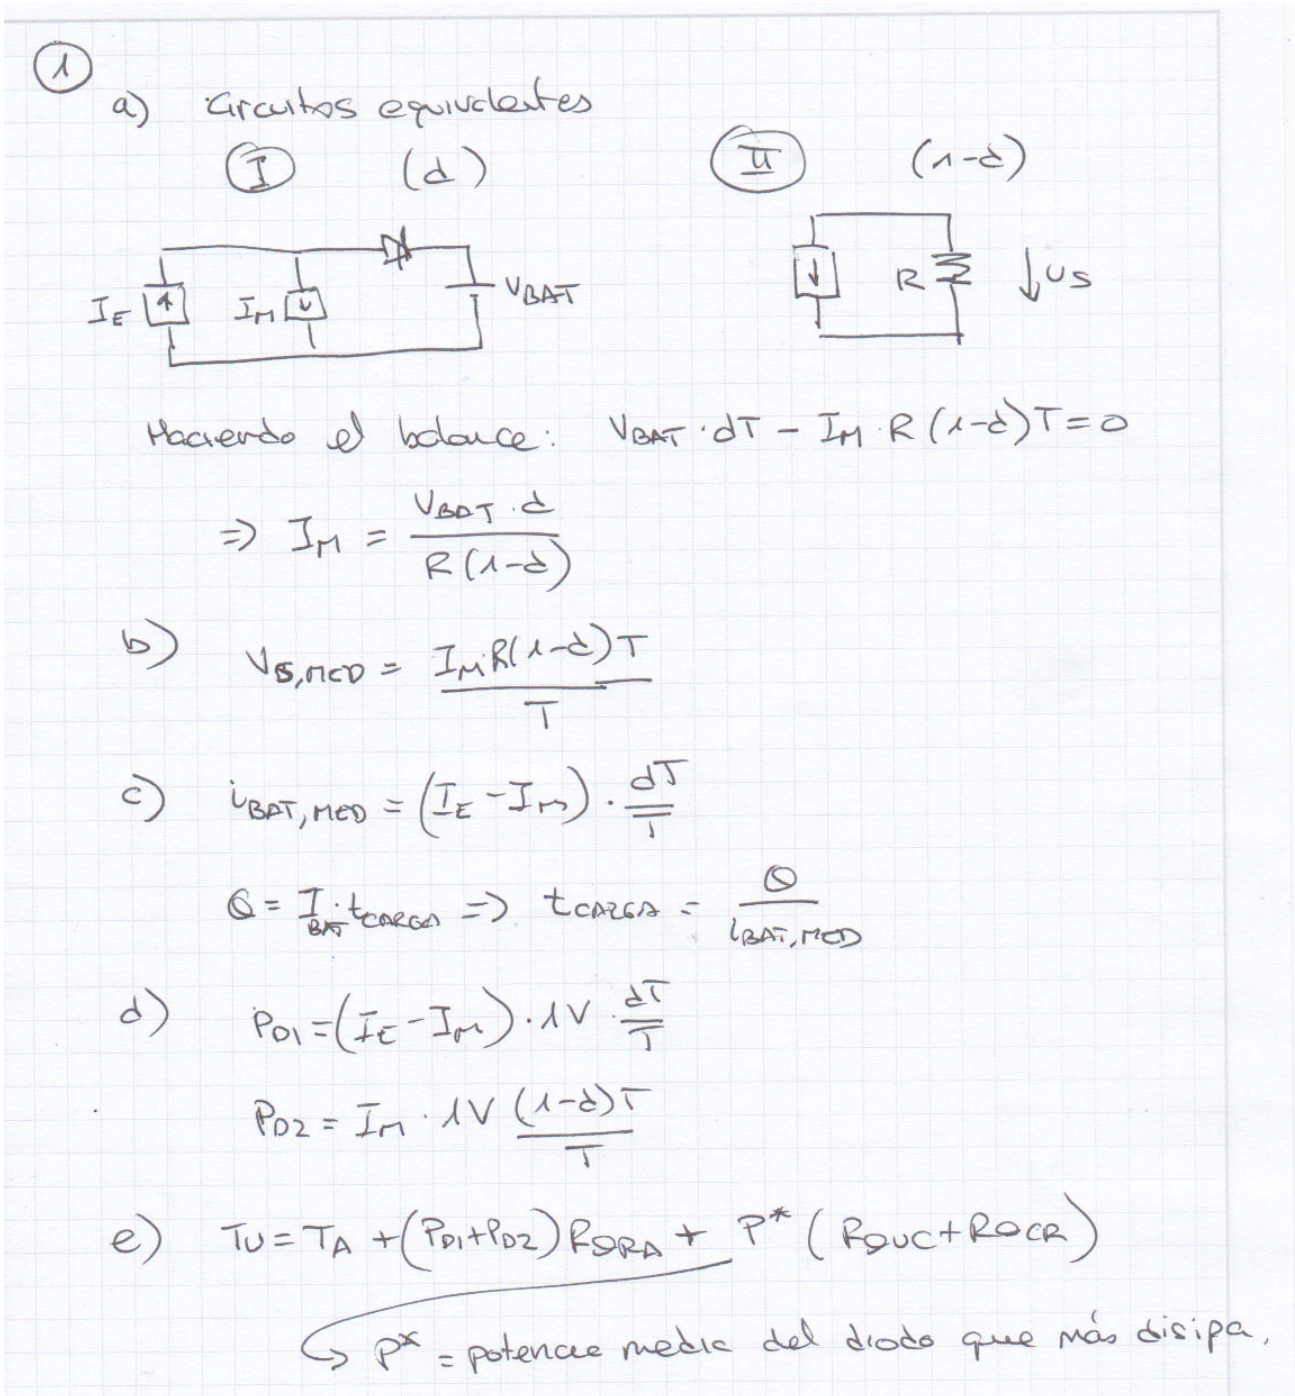 1
a) Circuitos equivalentes
I (d) II (1-d)
I_E I_M V_BAT R U_S
Haciendo el balance: V_BAT · dT - I_M · R (1-d) T = 0
=> I_M = V_BAT · d / R (1-d)
b) V_S,MED = I_M · R (1-d) T / T
c) i_BAT,MED = (I_E - I_M) · dT / T
Q = I_BAT · t_CARGA => t_CARGA = Q / i_BAT,MED
d) P_D1 = (I_E - I_M) · 1V · dT / T
P_D2 = I_M · 1V (1-d) T / T
e) TU = T_A + (P_D1 + P_D2) RθRA + P* (RθUC + RθCR)
↳ P* = potencia media del diodo que más disipa.